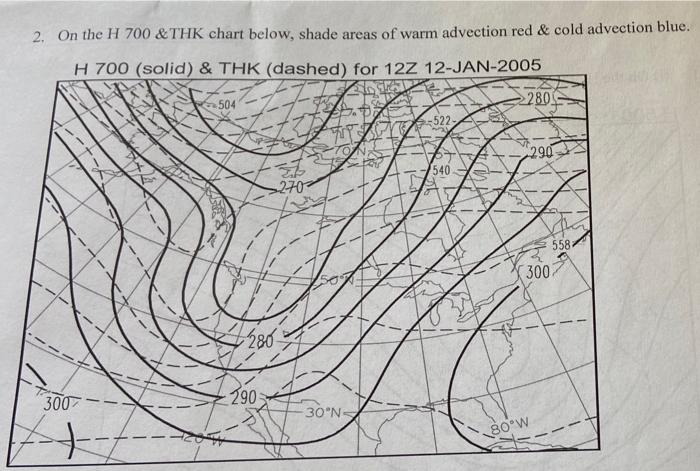 2. On the H 700 &THK chart below, shade areas of warm advection red & cold advection blue.
H 700 (solid) & THK (dashed) for 12Z 12-JAN-2005
504
280
522
290
270
540
558
50°N
300
280
290
300
30°N
80°W
120°W